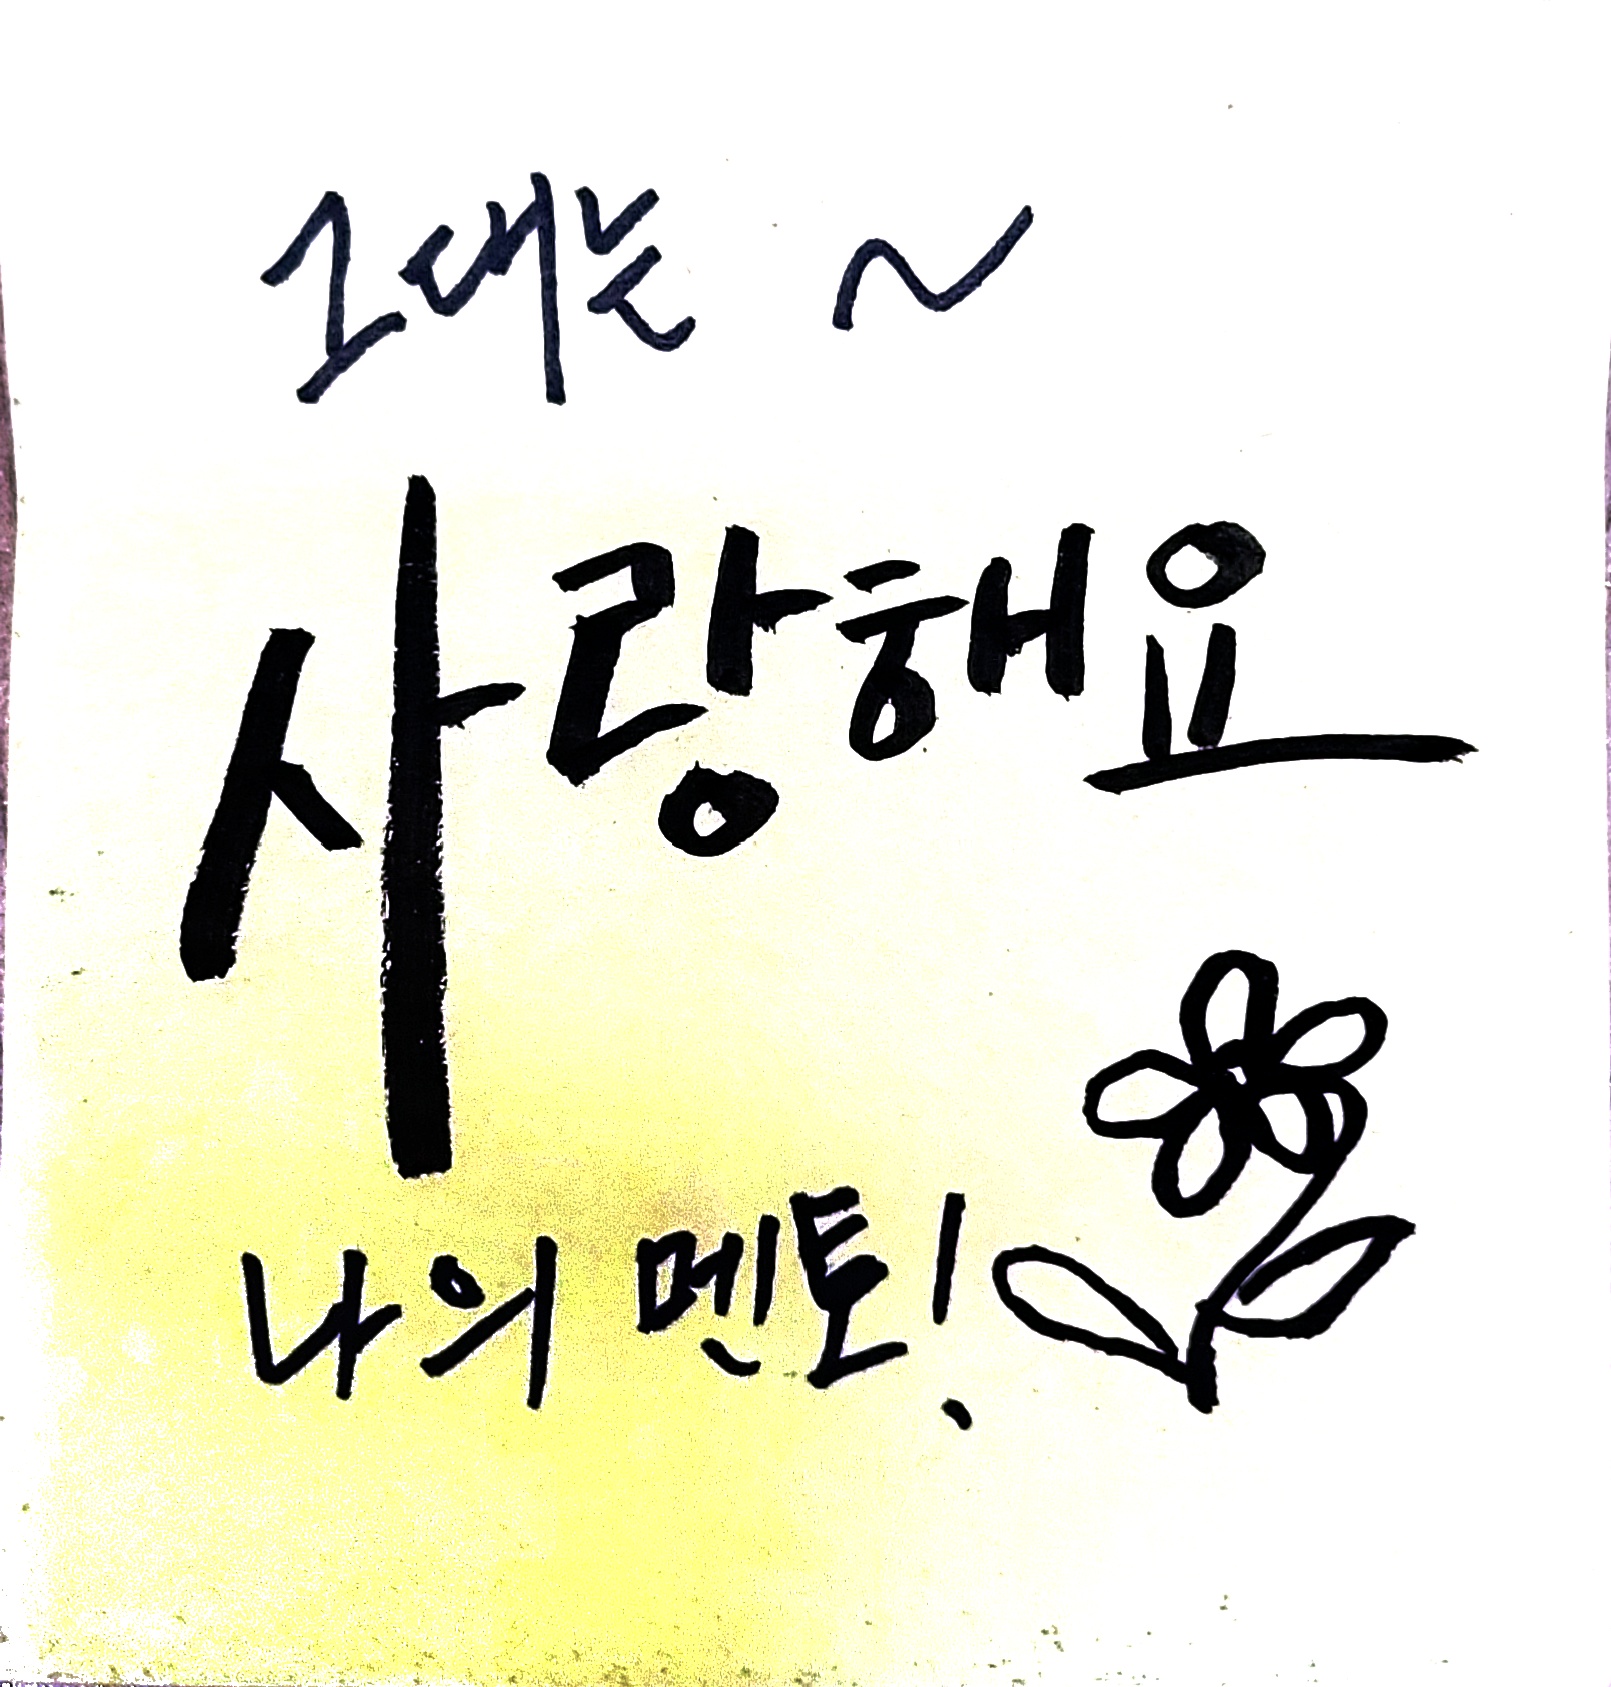 그대는 ~
사랑해요
나의 멘토!